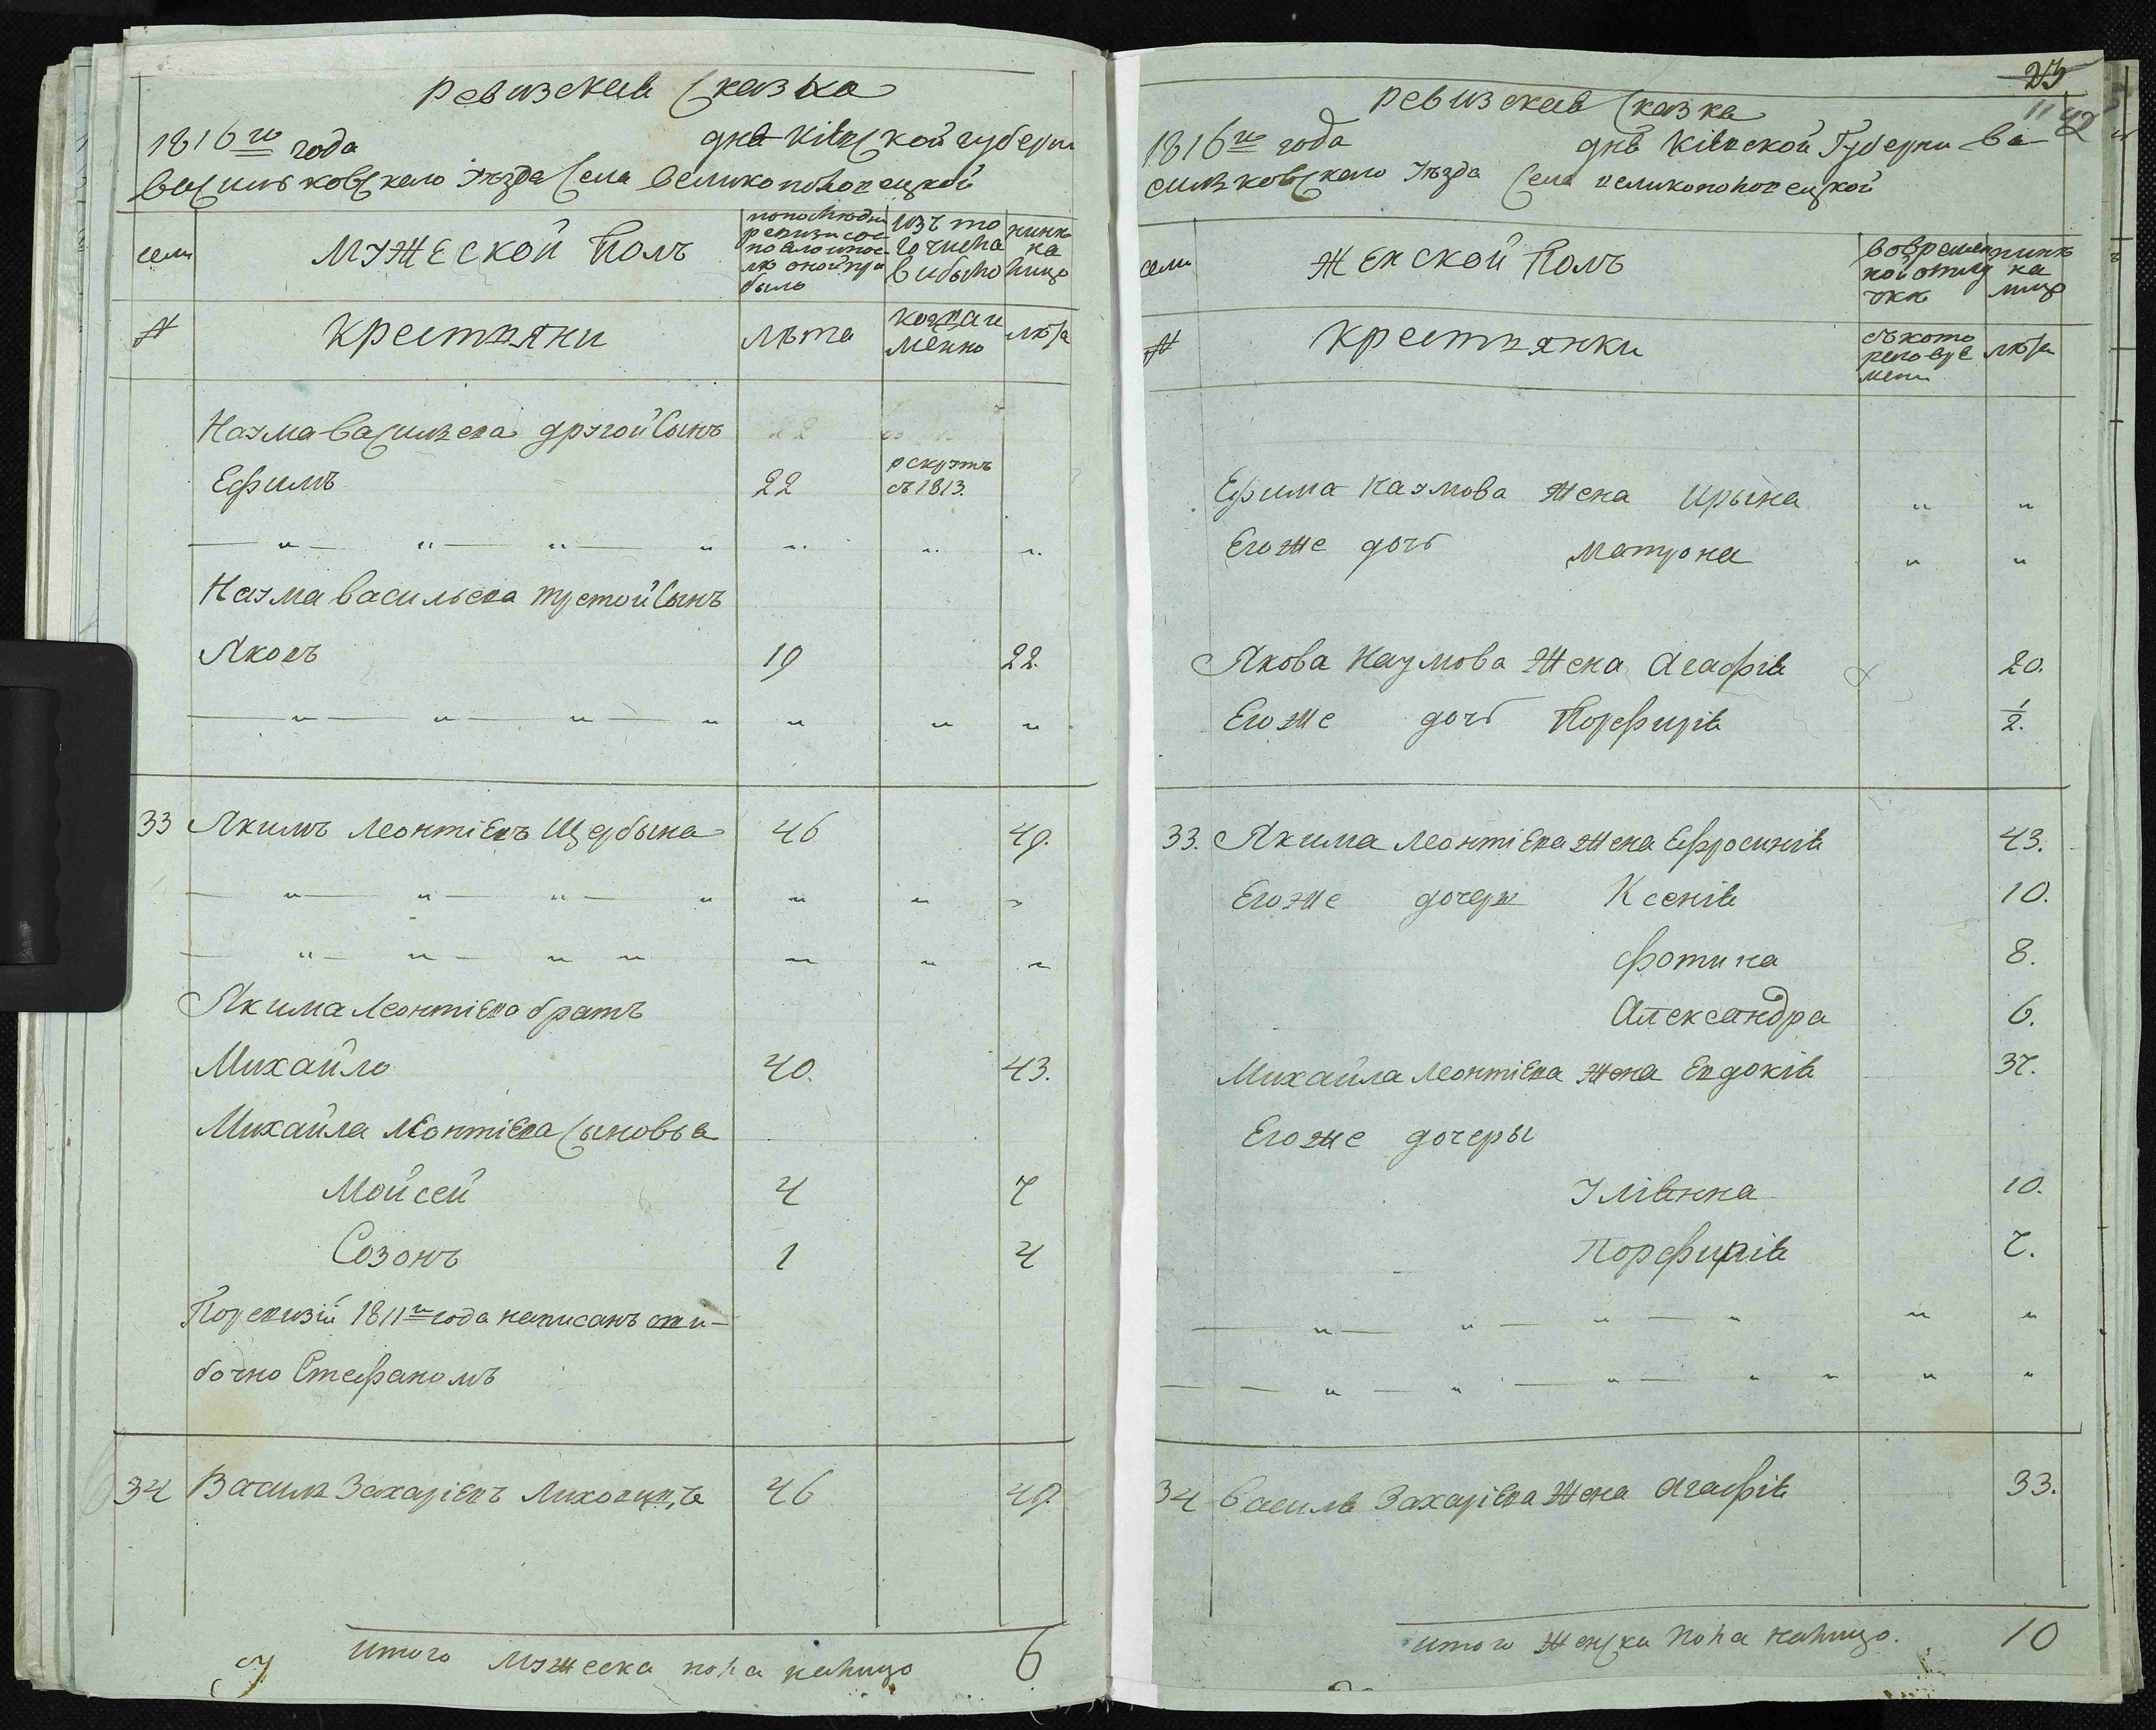 ревизская сказка
1816го года дня Кіевской губерни
васильковскаго уѣзда села великополовецкой
семи
мужеской полъ
по последней ревизи состояло и после оной прибыло
изъ того числа выбыло
ныне на лицо
№
крестьяни
лѣта
когда именно
лѣта
Наума васильева другой сынъ
Ефимъ 22 рекрутъ съ 1813.
Наума васильева третой сынъ
Яковъ 19 22.
33 Якимъ Леонтіевъ Щербына 46 49.
Якима Леонтіева братъ
Михайло 40. 43.
Михайла Леонтіева сыновья
Мойсей 4 7
Созонъ 1 4
По ревизіи 1811го года написанъ оши-
бочно Стефаномъ
34 Василь Захаріевъ 46 49.
итого мужеска пола налицо 6
23
42
ревизская сказка
1816го года дня Кіевской Губерни ва-
сильковскаго уѣзда села великополовецкой
семи
женской полъ
во временной отлучке
ныне на лицо
№
крестьянки
съ которого времени
лѣта
Ефима Наумова жена Ирына " "
Его же дочь Матрона " "
Якова Наумова жена Агафія 20.
Его же дочь Порфирія 1/2.
33. Якима Леонтіева жена Ефросинія 43.
Его же дочеры Ксенія 10.
Фотина 8.
Александра 6.
Михайла Леонтіева жена Евдокія 37.
Его же дочеры
Уліянна 10.
Порфирія 7.
34 Василя Захаріева жена Агафія 33.
итого женска пола налицо. 10